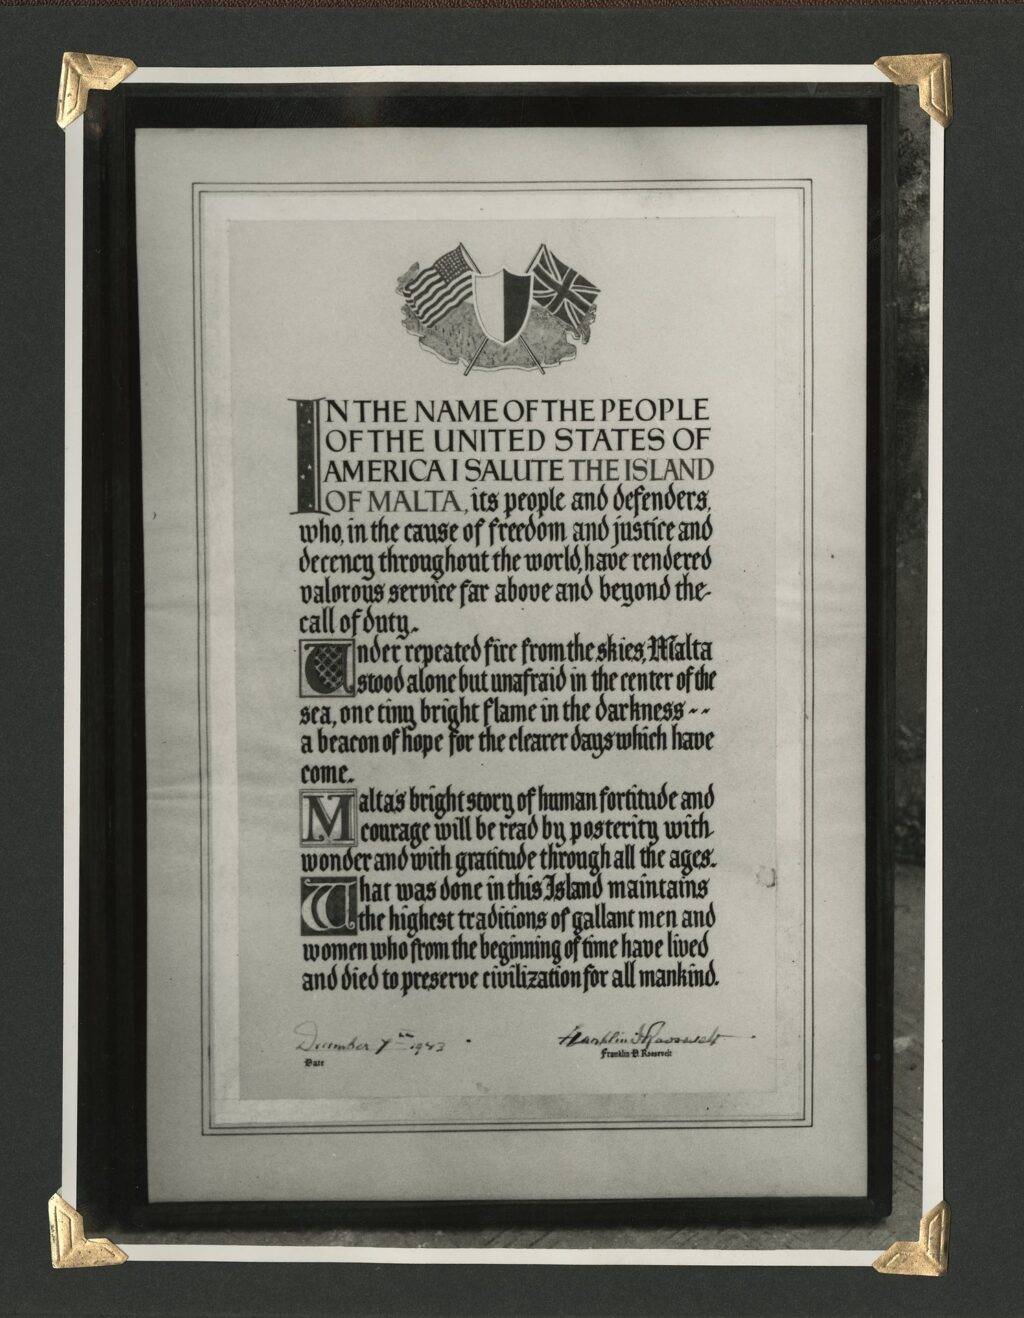 IN THE NAME OF THE PEOPLE
OF THE UNITED STATES OF
AMERICA I SALUTE THE ISLAND
OF MALTA, its people and defenders,
who, in the cause of freedom and justice and
decency throughout the world, have rendered
valorous service far above and beyond the
call of duty.
Under repeated fire from the skies, Malta
stood alone but unafraid in the center of the
sea, one tiny bright flame in the darkness --
a beacon of hope for the clearer days which have
come.
Malta's bright story of human fortitude and
courage will be read by posterity with
wonder and with gratitude through all the ages.
What was done in this Island maintains
the highest traditions of gallant men and
women who from the beginning of time have lived
and died to preserve civilization for all mankind.
December 7th 1943
Franklin D Roosevelt
Date
Franklin D. Roosevelt